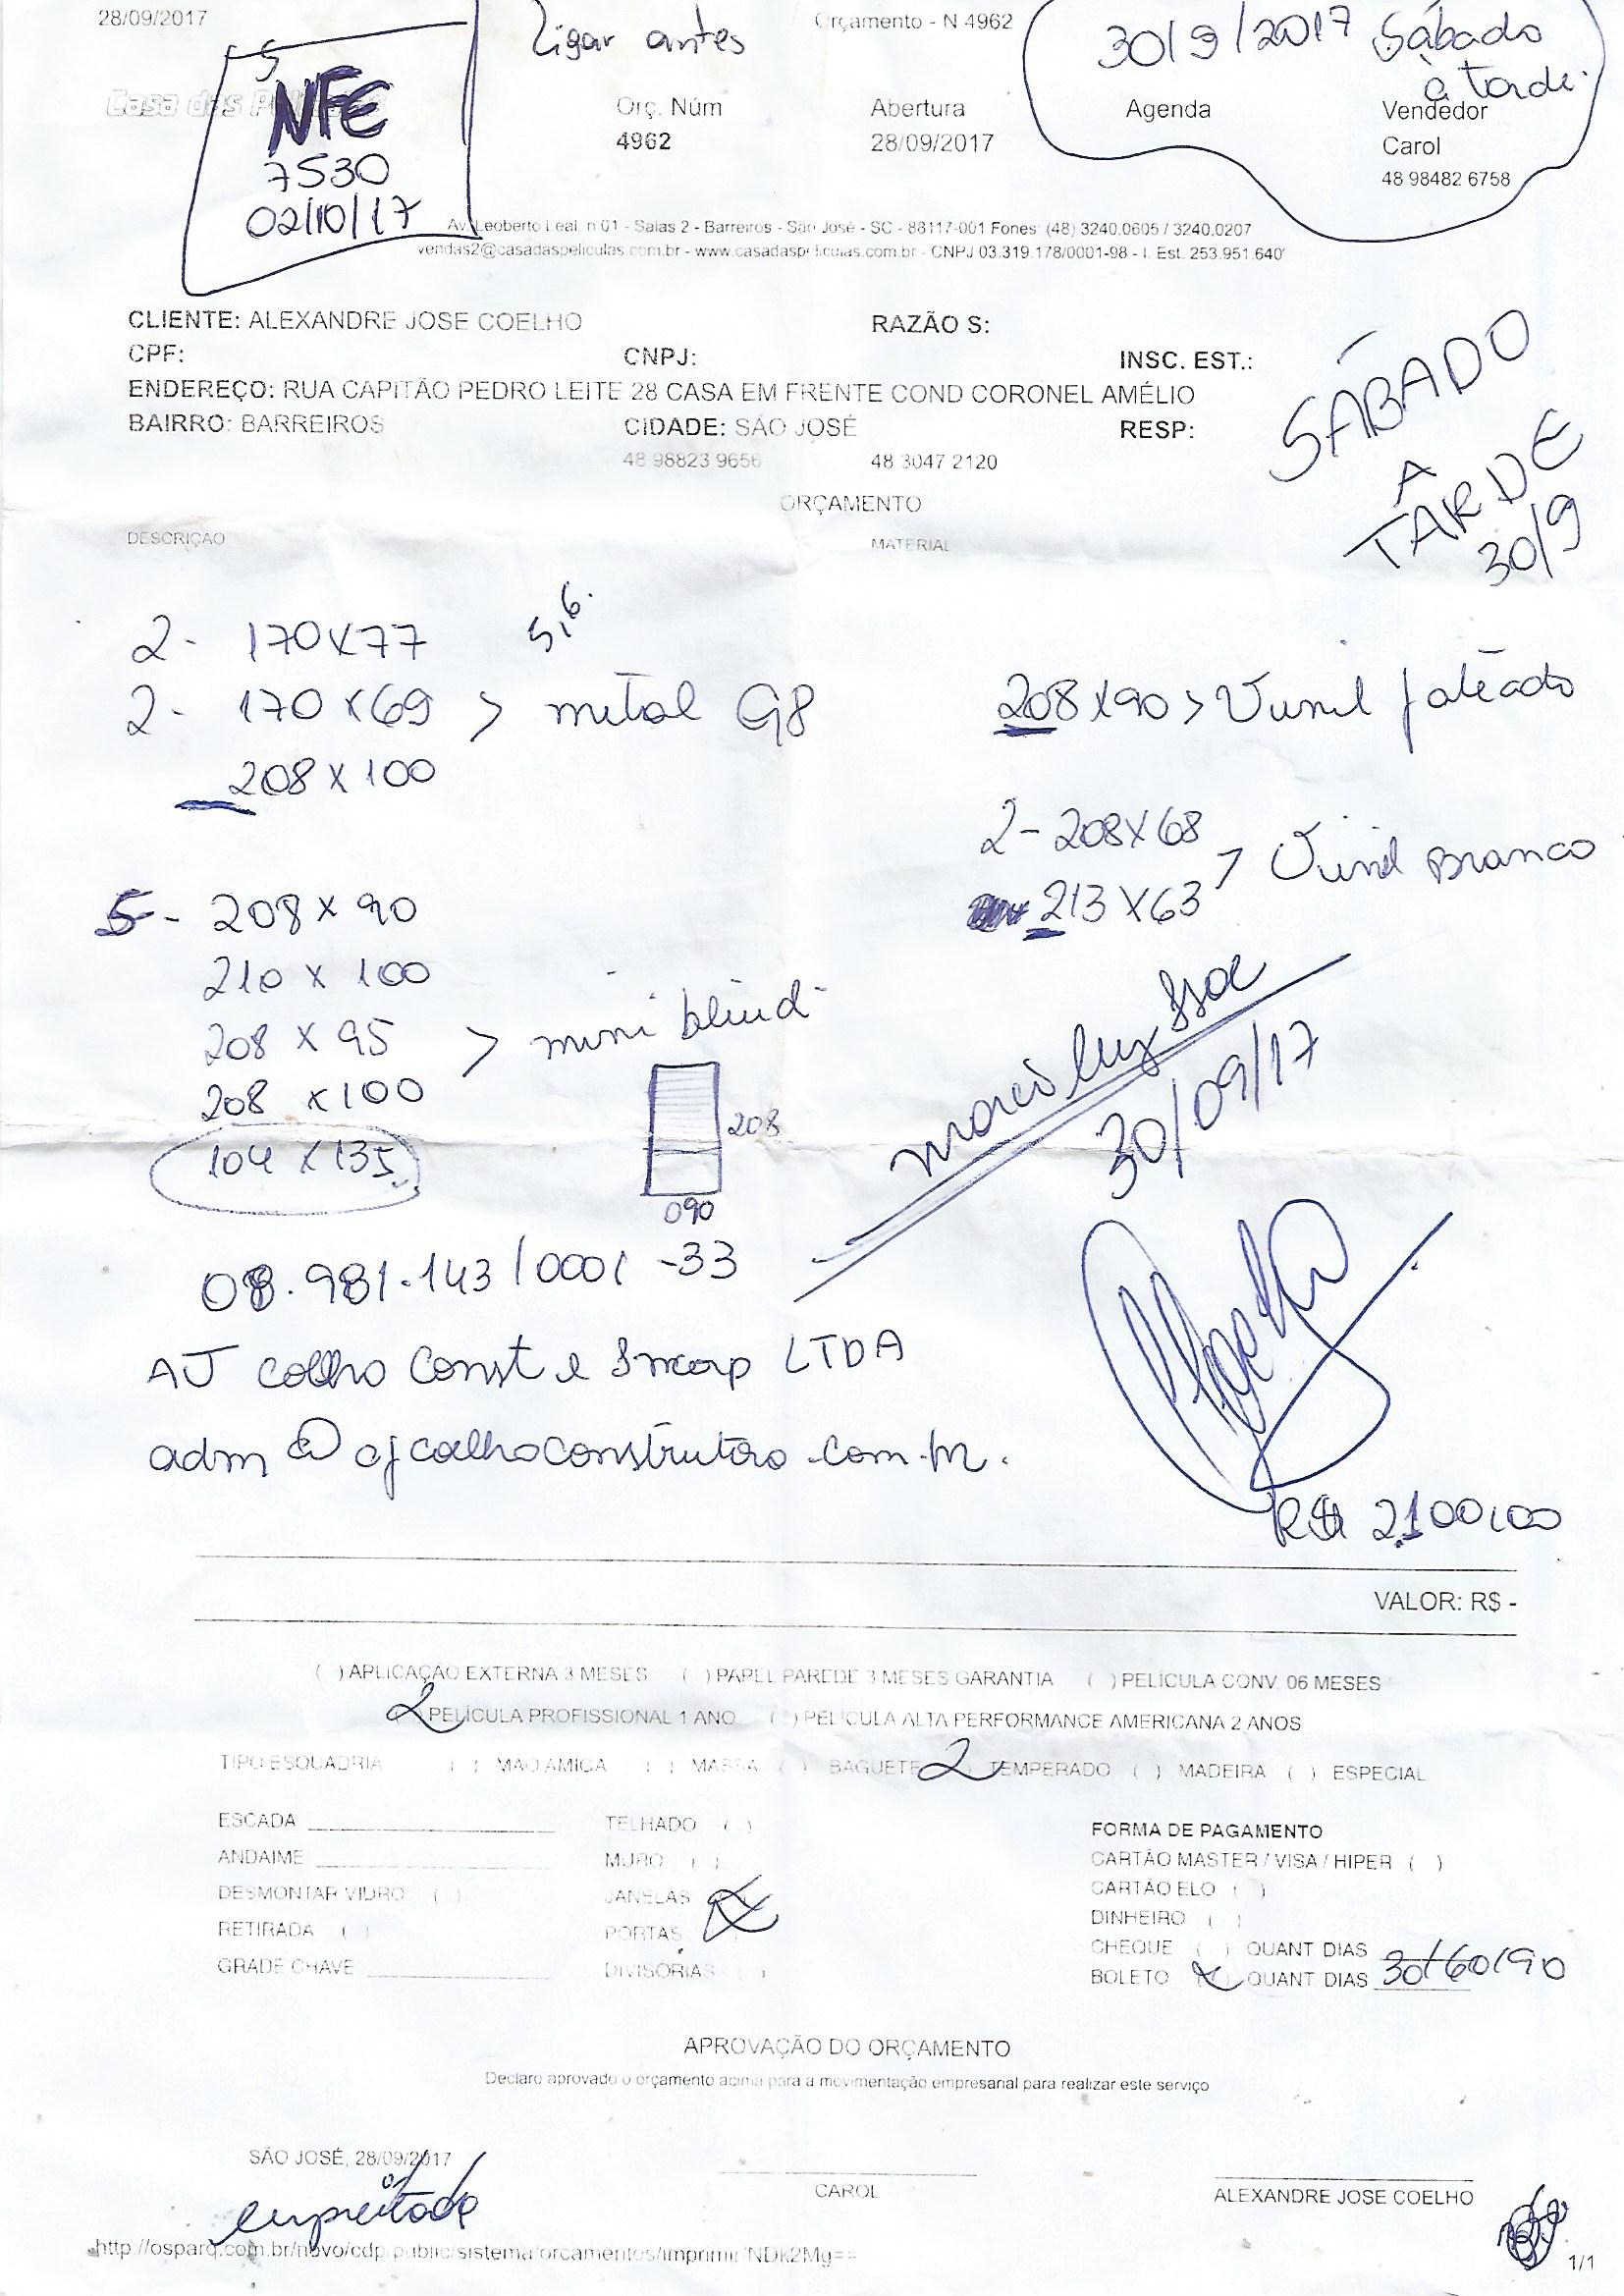 28/09/2017
Ligar antes
Orçamento - N 4962
30/9/2017 Sábado
a tarde.
NFE
7530
02/10/17
Casa das
Orç. Núm
4962
Abertura
28/09/2017
Agenda
Vendedor
Carol
48 98482 6758
Av. Leoberto Leal, n 01 - Salas 2 - Barreiros - São José - SC - 88117-001 Fones: (48) 3240.0605 / 3240.0207
vendas2@casadaspeliculas.com.br - www.casadaspeliculas.com.br - CNPJ 03.319.178/0001-98 - I. Est. 253.951.640
CLIENTE: ALEXANDRE JOSE COELHO RAZÃO S:
CPF: CNPJ: INSC. EST.:
ENDEREÇO: RUA CAPITÃO PEDRO LEITE 28 CASA EM FRENTE COND CORONEL AMÉLIO
BAIRRO: BARREIROS CIDADE: SÃO JOSÉ RESP:
48 98823 9656 48 3047 2120
SÁBADO
A
TARDE
30/9
ORÇAMENTO
DESCRIÇÃO MATERIAL
2- 170x77 5,6.
2- 170x69 > metal G8
208x100
208x90 > Vinil Jateado
2-208x68
213x63 > Vinil Branco
5- 208x90
210 x 100
208 x 95 > mini blind
208 x100
104 x135
208
090
30/09/17
08.981.143/0001-33
AJ Coelho Const e Incorp LTDA
adm@ajcoelhoconstrutora.com.br.
R$ 2.100,00
VALOR: R$ -
( ) APLICAÇÃO EXTERNA 3 MESES ( ) PAPEL PAREDE 3 MESES GARANTIA ( ) PELÍCULA CONV. 06 MESES
PELÍCULA PROFISSIONAL 1 ANO ( ) PELÍCULA ALTA PERFORMANCE AMERICANA 2 ANOS
TIPO ESQUADRIA ( ) MÃO AMIGA ( ) MASSA ( ) BAGUETE TEMPERADO ( ) MADEIRA ( ) ESPECIAL
ESCADA
ANDAIME
DESMONTAR VIDRO ( )
RETIRADA ( )
GRADE CHAVE
TELHADO ( )
MURO ( )
JANELAS X
PORTAS
DIVISÓRIAS
FORMA DE PAGAMENTO
CARTÃO MASTER / VISA / HIPER ( )
CARTÃO ELO ( )
DINHEIRO ( )
CHEQUE ( ) QUANT DIAS
BOLETO (X) QUANT DIAS 30/60/90
APROVAÇÃO DO ORÇAMENTO
Declaro aprovado o orçamento acima para a movimentação empresarial para realizar este serviço
SÃO JOSÉ, 28/09/2017
CAROL
ALEXANDRE JOSE COELHO
empreitada
http://osparq.com.br/novo/cdp/public/sistema/orcamentos/imprimir/NDk2Mg==
1/1